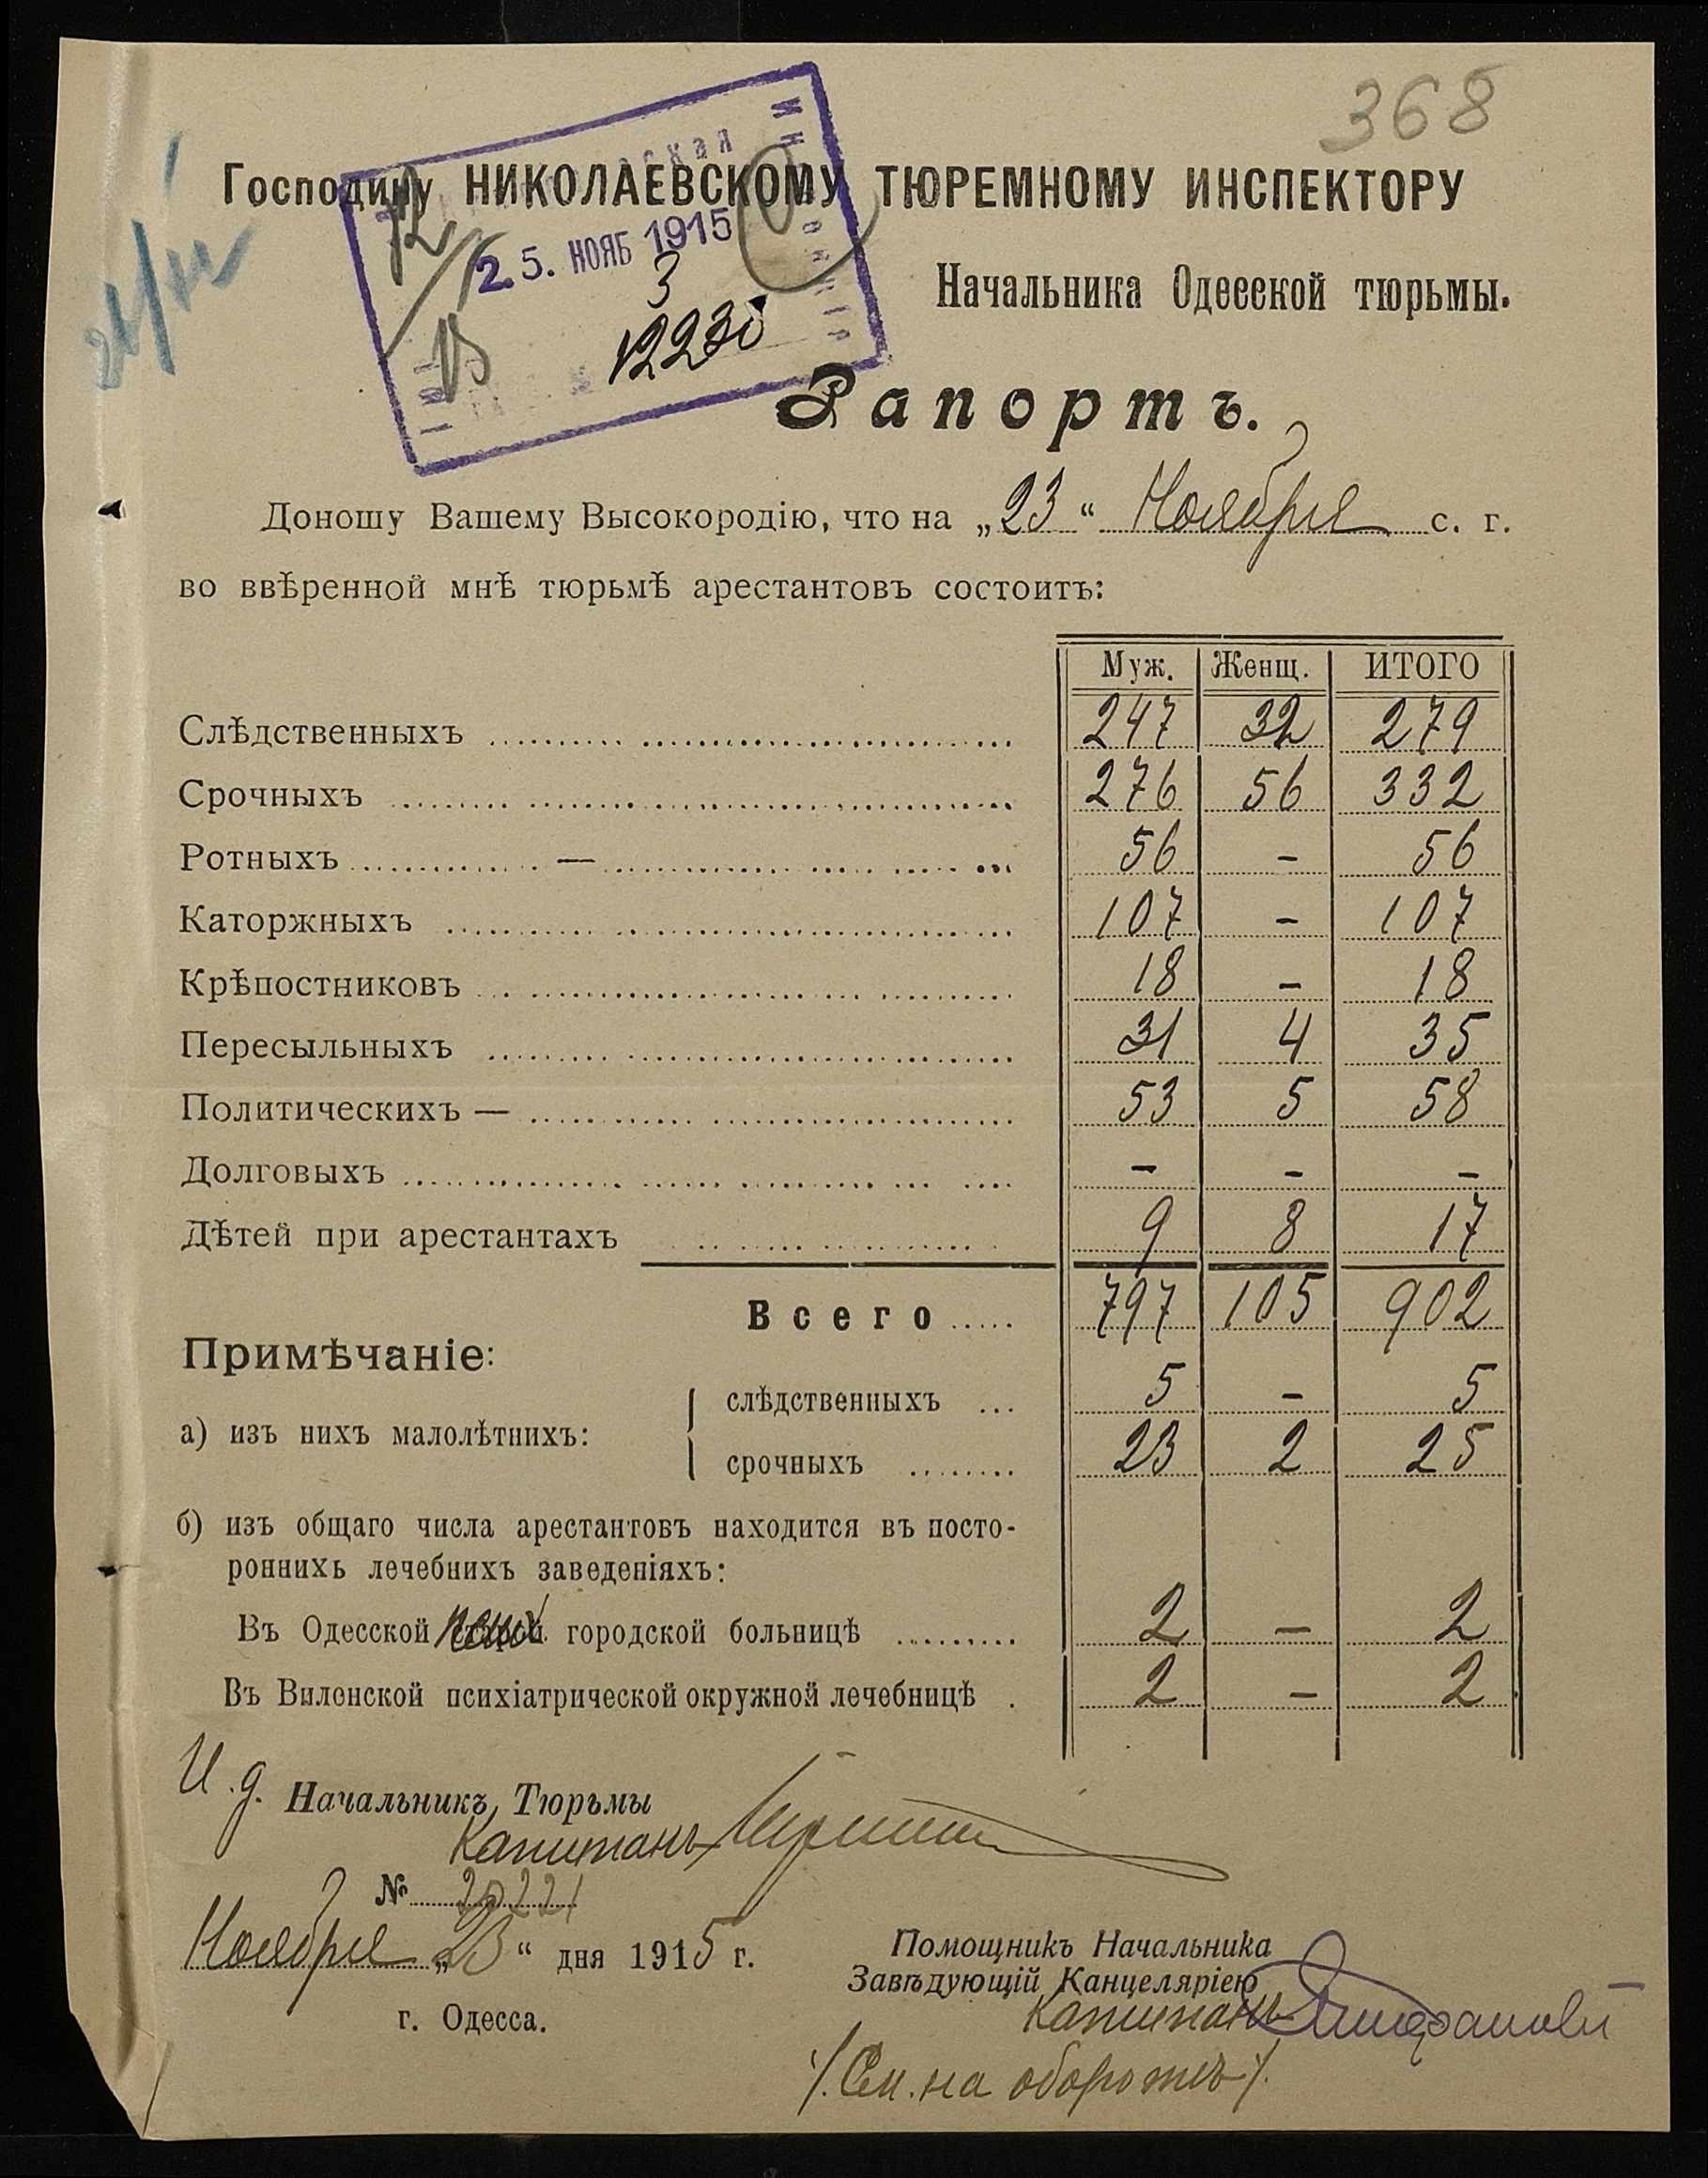 368
Господину НИКОЛАЕВСКОМУ ТЮРЕМНОМУ ИНСПЕКТОРУ
25. НОЯБ 1915
3
Начальника Одесской тюрьмы.
Рапортъ.
Доношу Вашему Высокородію, что на „23“ Ноября с. г.
во ввѣренной мнѣ тюрьмѣ арестантовъ состоитъ:
Муж. Женщ. ИТОГО
Слѣдственныхъ 247 32 279
Срочныхъ 276 56 332
Ротныхъ — 56 - 56
Каторжныхъ 107 - 107
Крѣпостниковъ 18 - 18
Пересыльныхъ 31 4 35
Политическихъ — 53 5 58
Долговыхъ - - -
Дѣтей при арестантахъ 9 8 17
Всего 797 105 902
Примѣчаніе:
а) изъ нихъ малолѣтнихъ:
слѣдственныхъ 5 - 5
срочныхъ 23 2 25
б) изъ общаго числа арестантовъ находится въ посто-
роннихь лечебнихъ заведеніяхъ:
Въ Одесской городской больницѣ 2 - 2
Въ Виленской психіатрической окружной лечебницѣ 2 - 2
И.д. Начальникъ Тюрьмы
Капитанъ
№ 20221
Ноября „23“ дня 1915 г.
г. Одесса.
Помощникъ Начальника
Завѣдующій Канцеляріею
Капитанъ
/. См. на оборотѣ /.